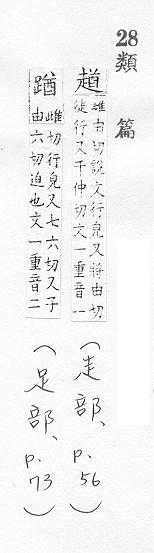 28 類篇
趥
雌由切說文行皃又將由切
徒行又千仲切文一重音一
（走部、p.56）
䠓
雌切行皃又七六切又子
由六切迫也文一重音二
（足部、p.73）